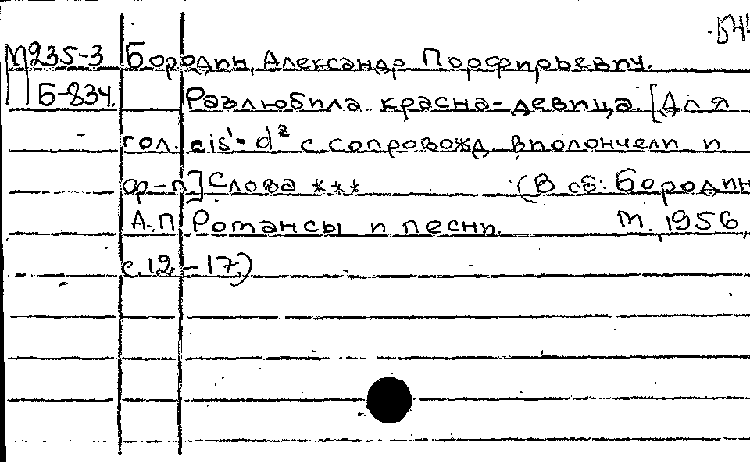 М235-3 Бородин, Александр Порфирьевич.
Б-834. Разлюбила красна-девица. [Для
гол. cis¹- d² с сопровожд. виолончели и
ф-п.] Слова *** (В сб: Бородин
А.П. Романсы и песни. М., 1956,
с. 12 - 17.)